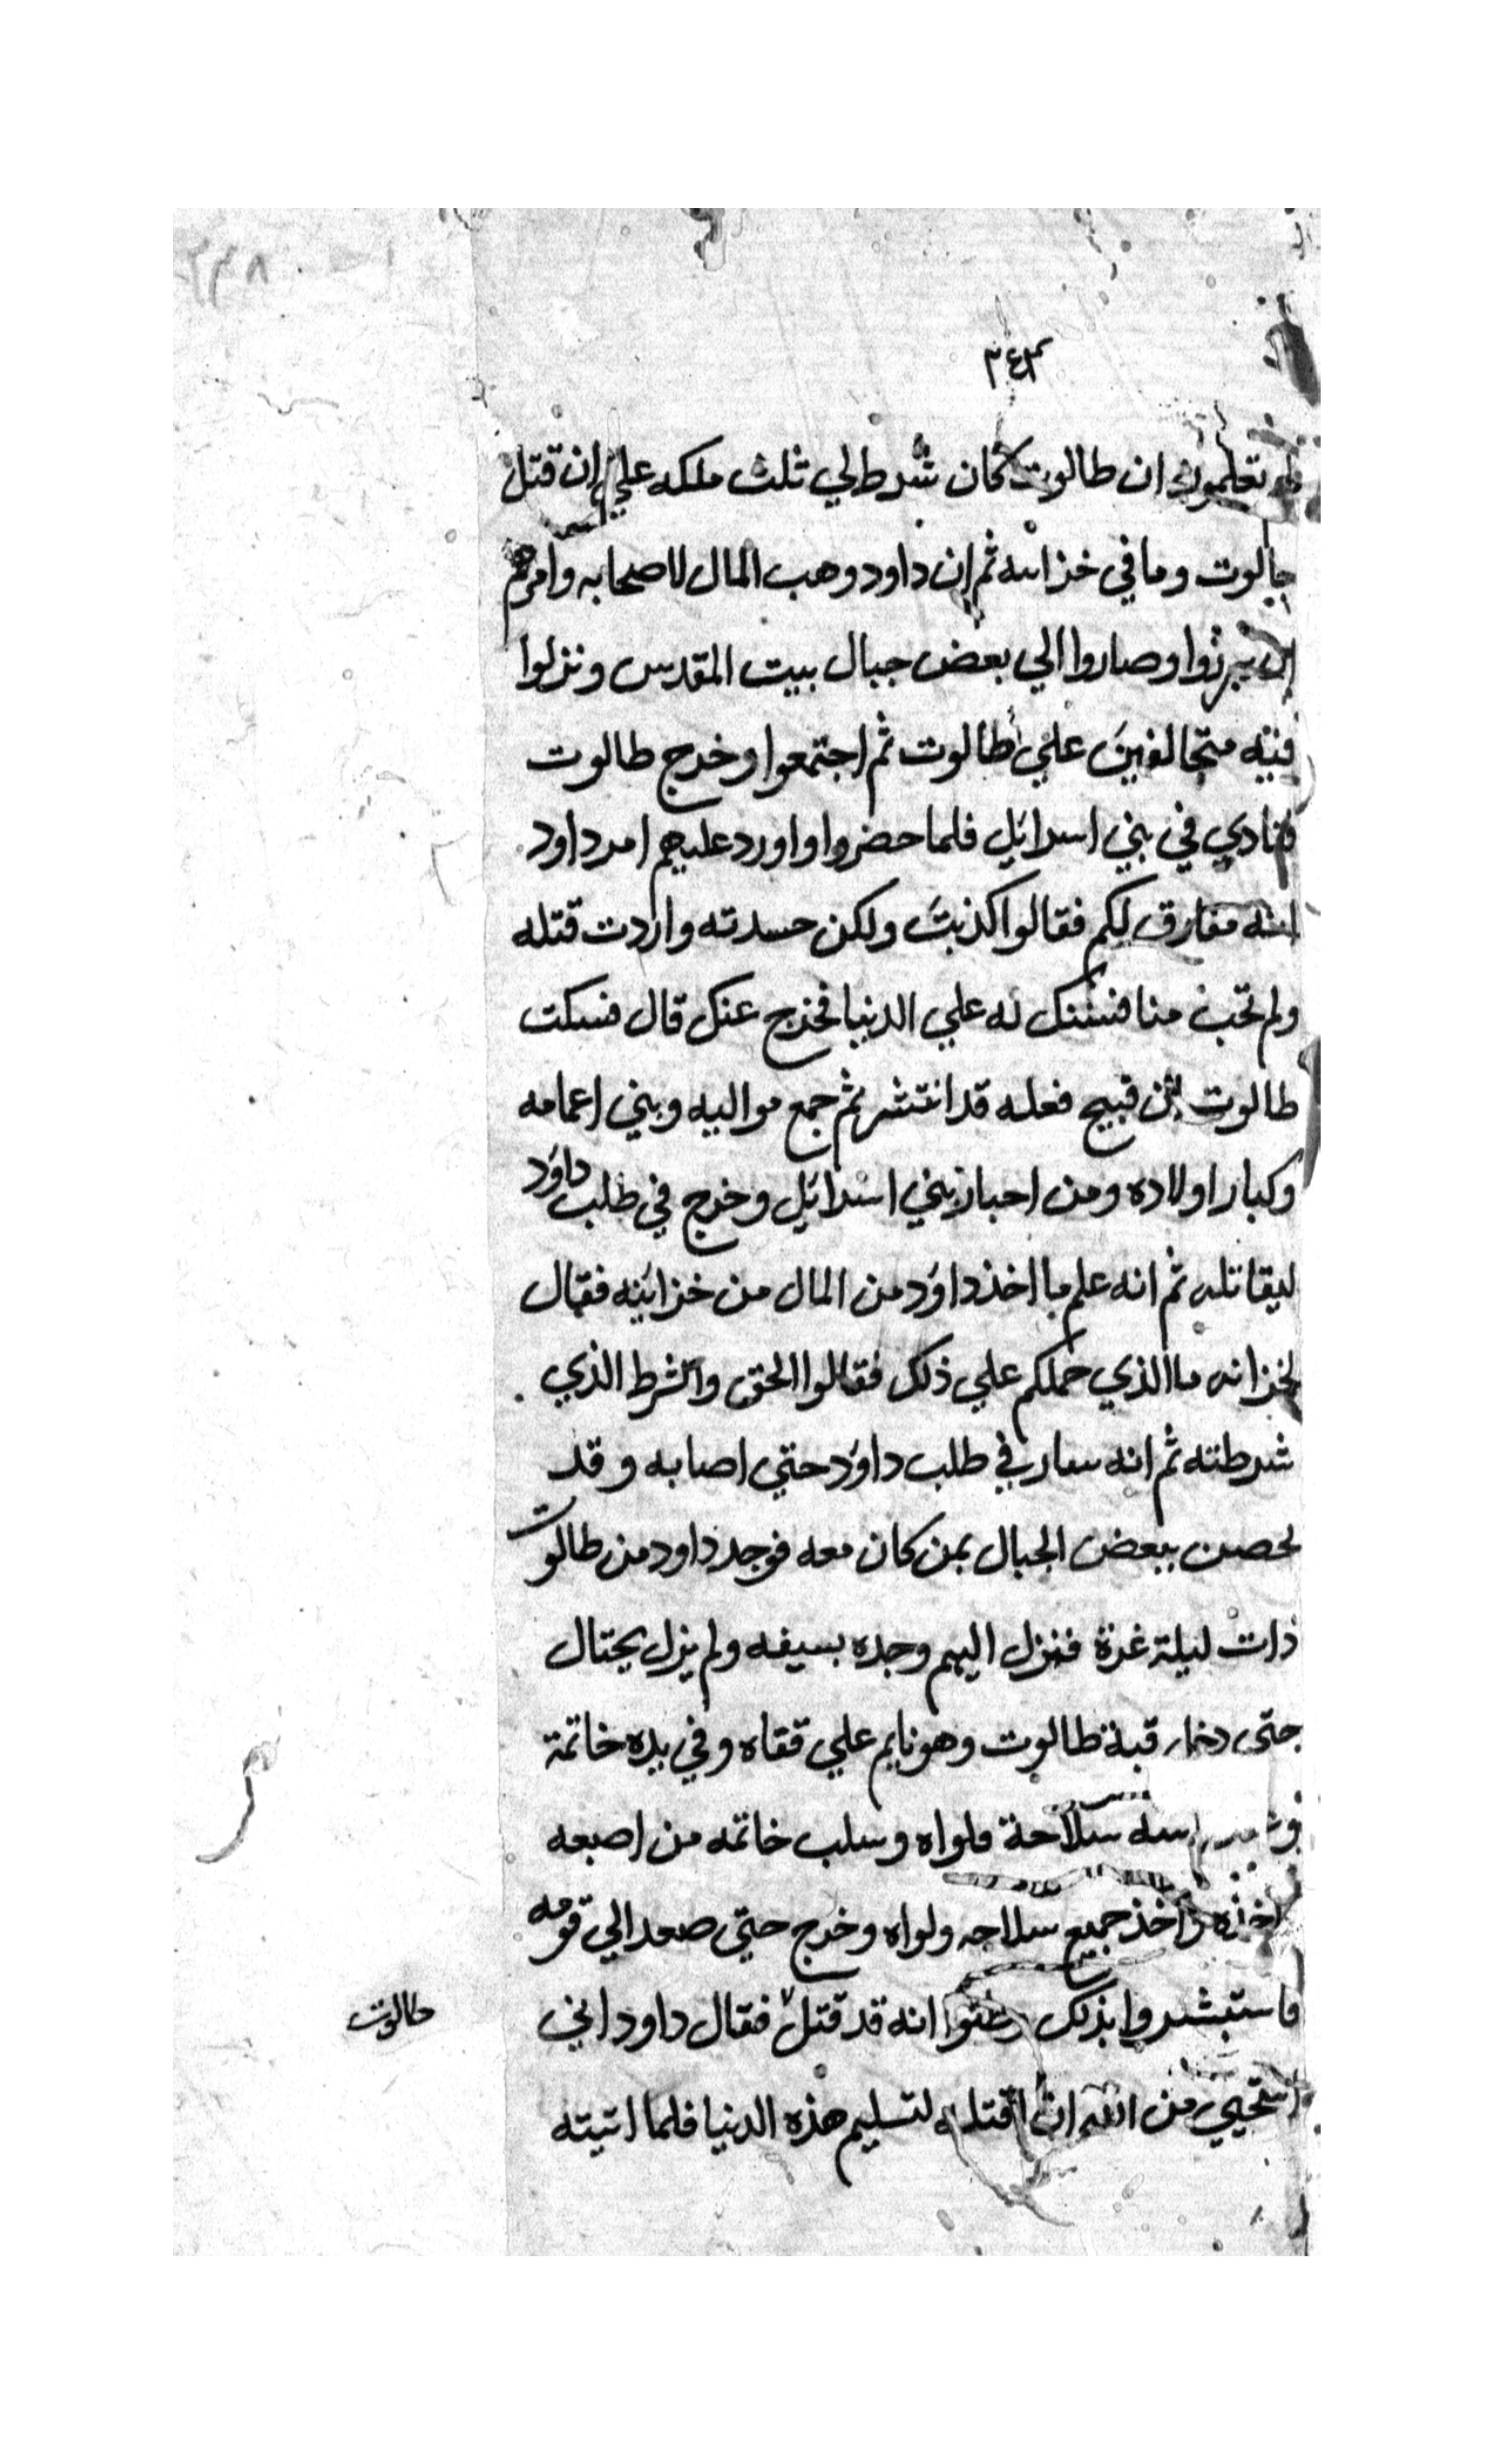 ٢٣٨
٣٤٣
تعلمون ان طالوت كان شرط لي ثلث ملكه علي ان قتل
جالوت وما في خزائنه ثم ان داود وهب المال لاصحابه وامرهم
ان يبرزوا وصاروا الي بعض جبال بيت المقدس ونزلوا
فيه متحالفين علي طالوت ثم اجتمعوا وخرج طالوت
فنادي في بني اسرائيل فلما حضروا واورد عليهم امر داود
انه مفارق لكم فقالوا كذبت ولكن حسدته واردت قتله
ولم تحب منافستك له علي الدنيا فخرج عنك قال فسكت
طالوت قبيح فعله قد انتشر ثم جمع مواليه وبني اعمامه
وكبار اولاده ومن احبار بني اسرائيل وخرج في طلب داود
ليقاتله ثم انه علم ما اخذ داود من المال من خزائنه فقال
لخزانه ما الذي حملكم علي ذلك فقالوا الحق والشرط الذي
شرطته ثم انه سار في طلب داود حتي اصابه وقد
تحصن ببعض الجبال بمن كان معه فوجد داود من طالوت
ذات ليلة غرة فنزل اليهم وحده بسيفه ولم يزل يحتال
حتى دخل قبة طالوت وهو نايم علي قفاه وفي يده خاتمة
سلاحة ولواه وسلب خاتمه من اصبعه
اخذه واخذ جميع سلاحه ولواه وخرج حتي صعد الي قومه
فاستبشروا بذلك وظنوا انه قد قتل فقال داود اني
طالوت
استحيي من الله ان اقتله لتسليم هذه الدنيا فلما اتيته